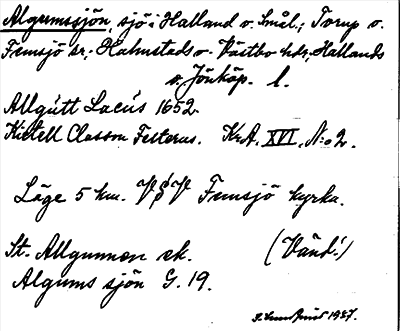 Algumssjön, sjö i Halland o. Smål.; Torup o.
Femsjö sr; Halmstads o. Västbo hdr; Hallands
o. Jönköp. l.
Allgútt Lacús 1652.
Kietell Classon Felterus. KrA. XVI, N:o 2.
Läge 5 km. VSV Femsjö kyrka.
St. Allgunnen ek. (Vänd!)
Algums sjön G. 19.
1987.